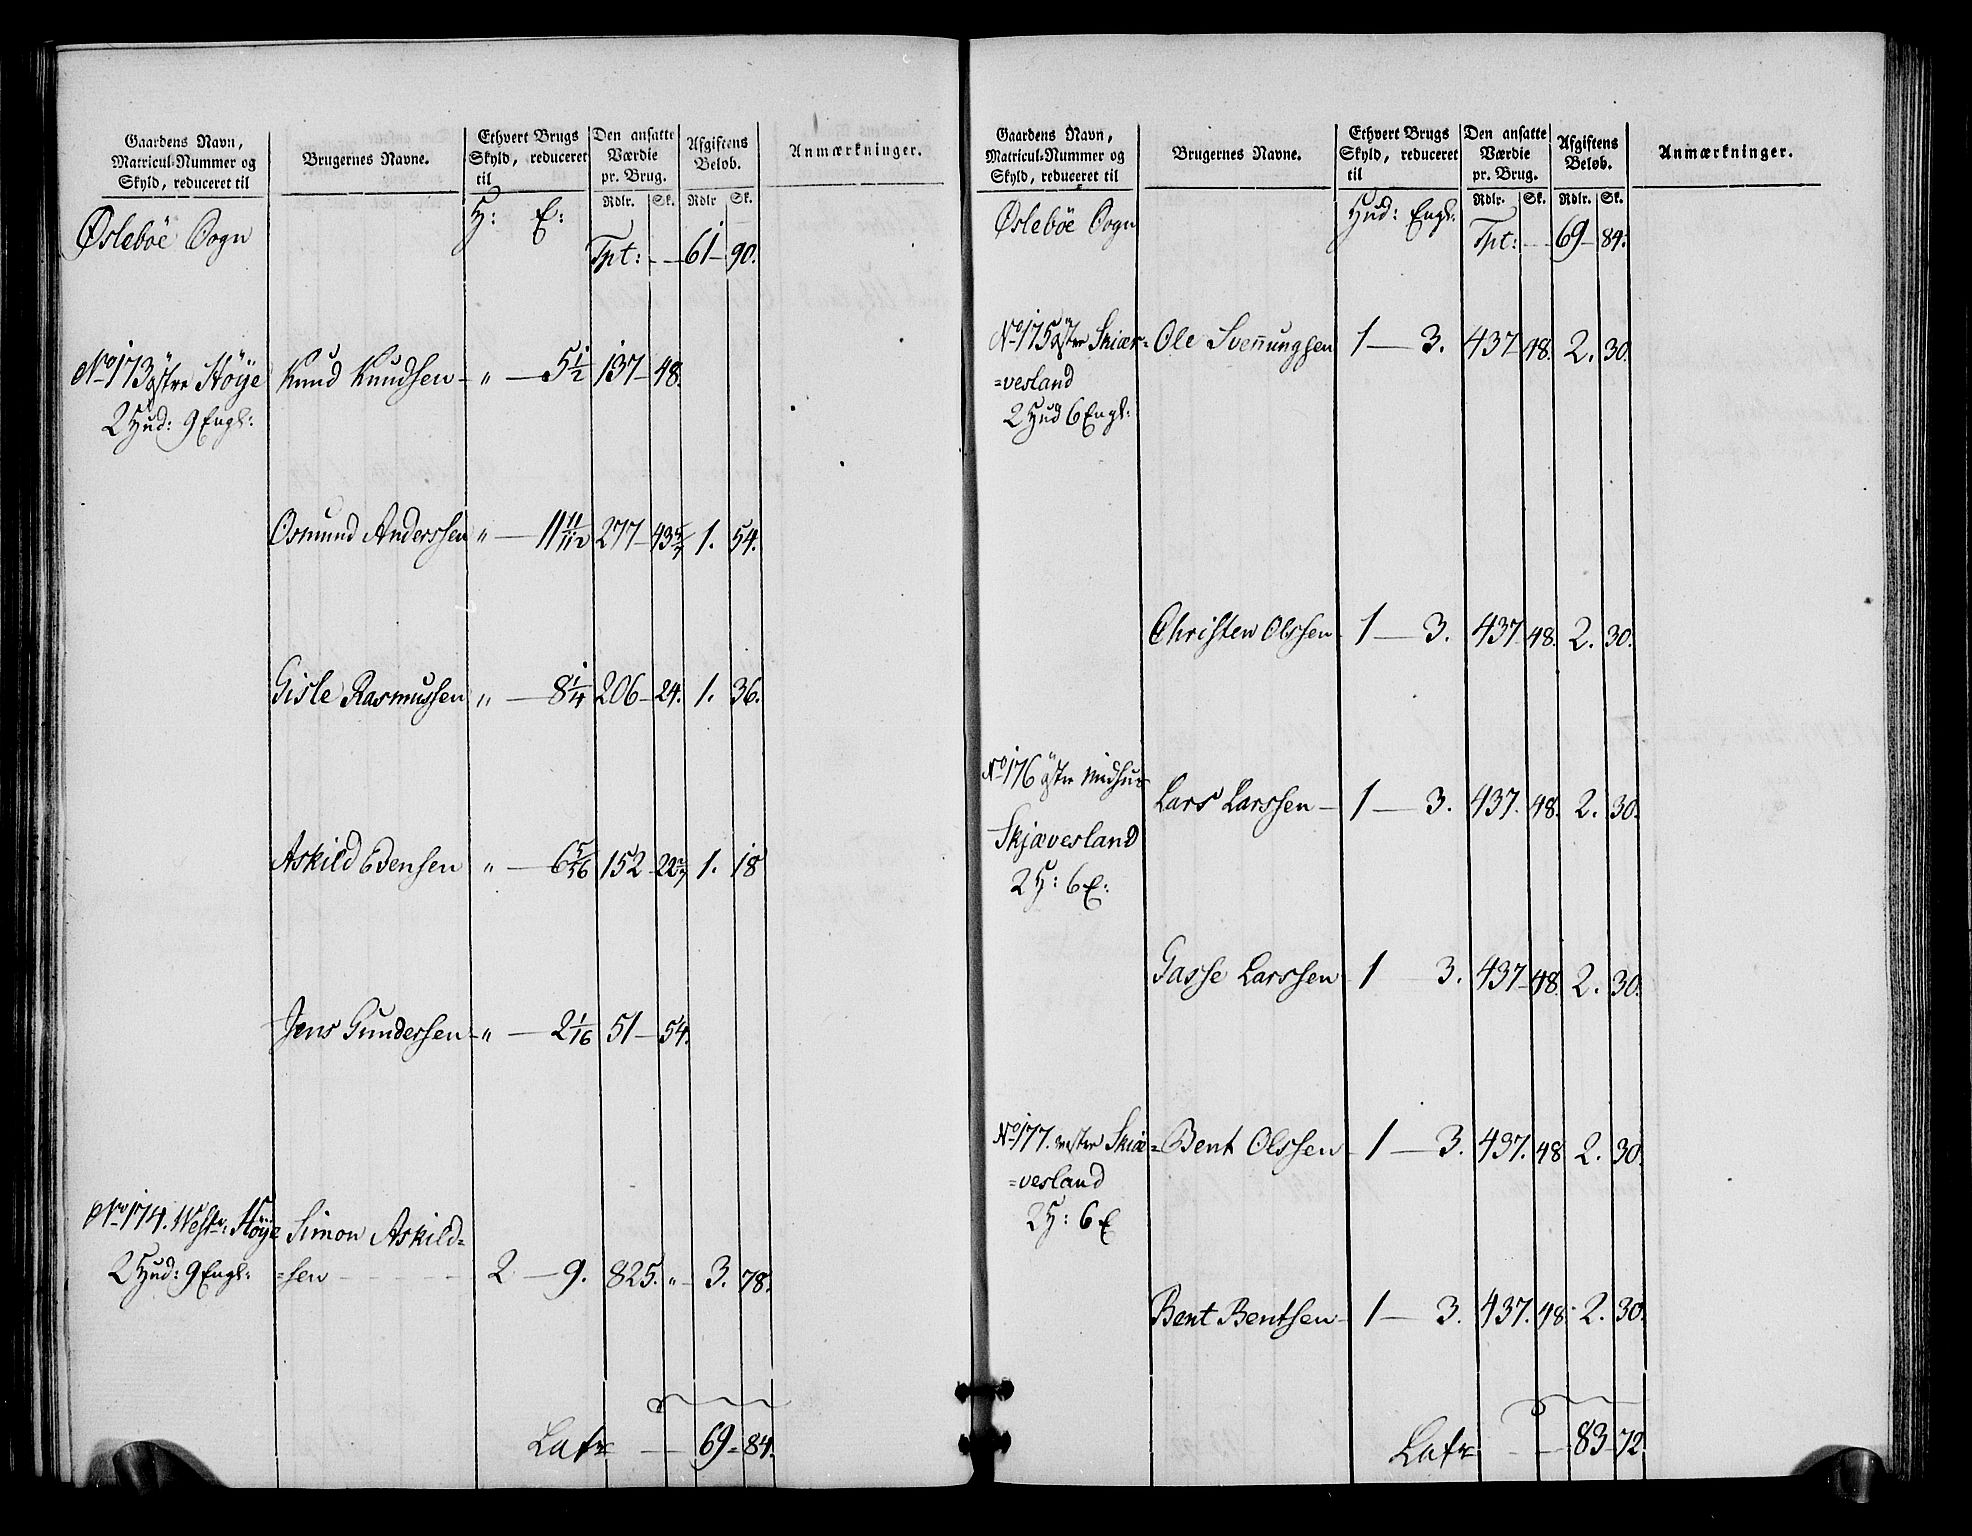 Gaardens Navn,
Matricul-Nummer og
Skyld, reduceret til
Brugernes Navne.
Ethvert Brugs
Skyld, reduceret
til
Den ansatte
Værdie
pr. Brug.
Afgiftens
Beløb.
Anmærkninger.
Rdlr. Sk. Rdlr Sk.
Øslebøe Sogn H: E:
Tpt: - - 61 - 90.
No 173 østre Høye Knud Knudsen - " - 5 1/2 137 - 48.
2 Hud: 9 Engl:
Osmund Anderssen " - 11 11/112 277 - 43 5/7 1. 54.
Gisle Rasmussen " - 8 1/4 206 - 24. 1. 36.
Askild Edensen " - 6 5/56 152 - 22 2/7 1. 18
Jens Gunderssen - " - 2 1/16 51 - 54.
No 174. Westr: Høÿe Simon Askild=
2 Hud: 9 Engl: =sen - - - 2 - 9. 825. " - 3. 78.
Latr - - 69 - 84.
Gaardens Navn,
Matricul-Nummer og
Skyld, reduceret til
Brugernes Navne.
Ethvert Brugs
Skyld, reduceret
til
Den ansatte
Værdie
pr. Brug.
Afgiftens
Beløb.
Anmærkninger.
Rdlr. Sk. Rdlr. Sk.
Øslebøe Sogn Hud: Engl:
Tpt: - - 69 - 84.
No 175 østre Skiær= Ole Svennungsen 1 - 3. 437 48. 2. 30.
=vesland
2 Hud 6 Engl:
Christen Olssen 1 - 3. 437. 48. 2. 30.
No 176 østre Midhus
Lars Larssen - 1 - 3. 437. 48. 2. 30.
Skjævesland
2 H: 6 E:
Gasse Larssen 1 - 3. 437 - 48. 2. 30.
No 177. vestre Skiæ= Bent Olssen 1 - 3. 437. 48 2. 30.
=vesland
2 H: 6 E
Bent Bentsen - 1 - 3. 437. 48. 2. 30.
Latr - - 83 - 72.